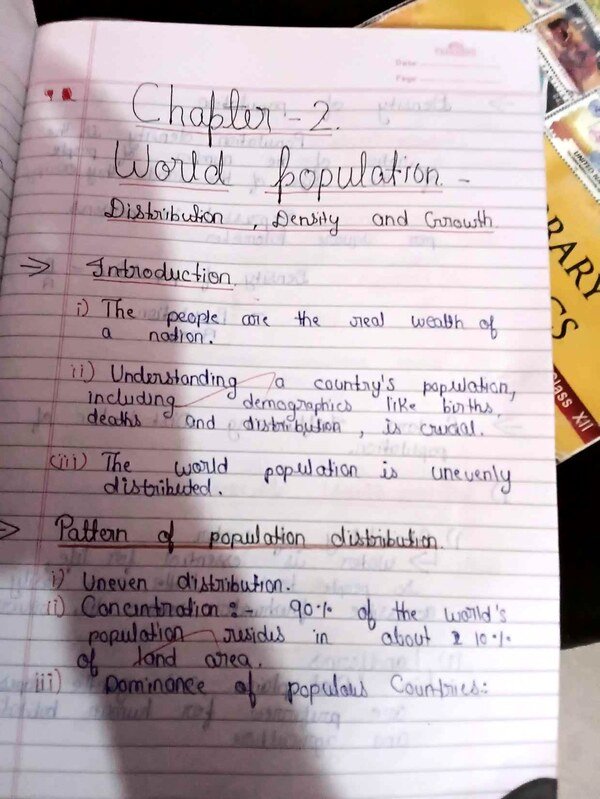 Date
Page
Chapter - 2.
World population -
Distribution, Density and Growth
⇒ Introduction.
i) The people are the real wealth of
a nation.
ii) Understanding a country's population,
including demographics like births,
deaths and distribution, is crucial.
(iii) The world population is unevenly
distributed.
⇒ Pattern of population distribution.
i) Uneven distribution.
ii) Concintration :- 90% of the world's
population resides in about 10%
of land area.
iii) Dominance of populous Countries:
UNITED
RARY
CS
lass XII